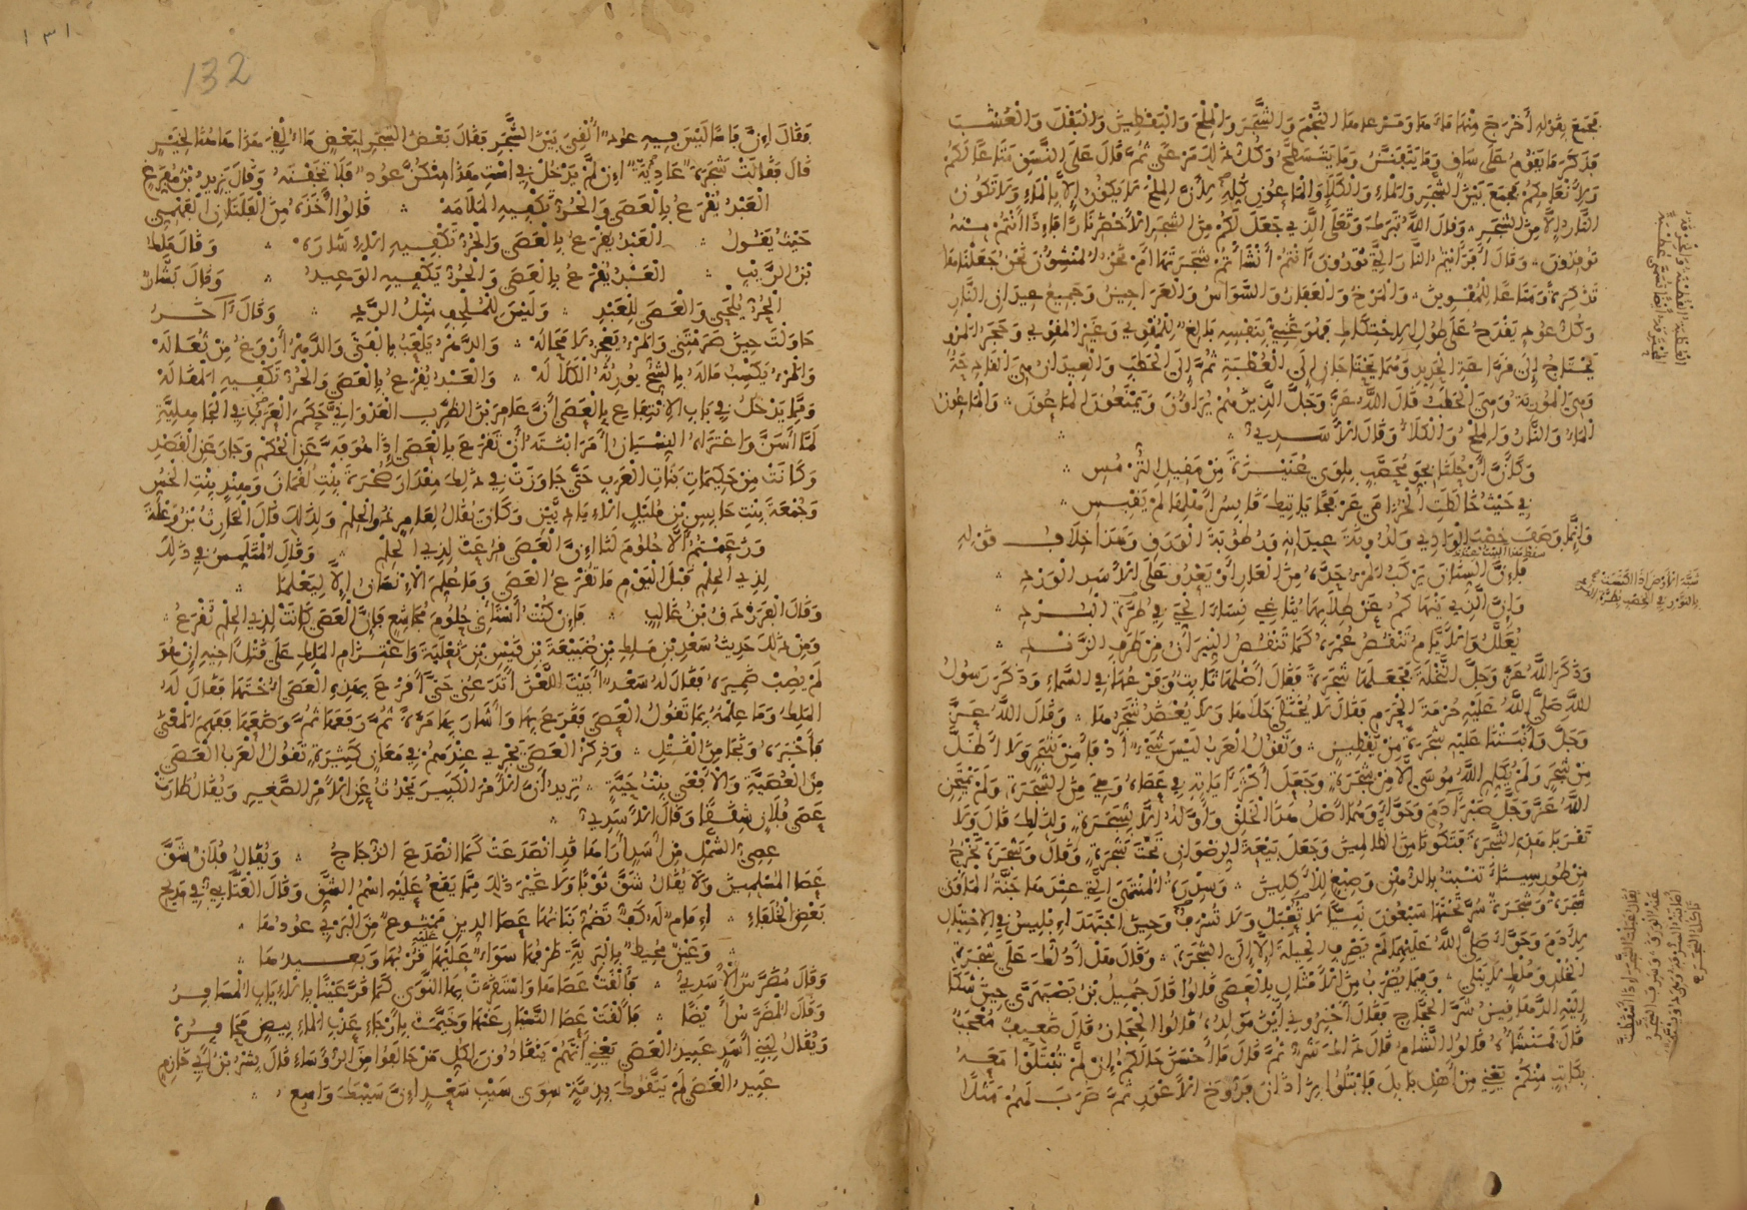 فجمع بقوله أخرج منها ماءها ومرعاها النجم والشجر والملح واليقطين والبقل والعشب
فذكر ما يقوم على ساق وما يتفنن وما يتسطح وكل ذلك مرعى ثم قال على النسق متاعا لكم
ولأنعامكم فجمع بين الشجر والماء والكلأ والماعون كله لأن الملح لا يكون إلا بالماء ولا تكون
النار إلا من الشجر وقال الله تبرك وتعلى الذي جعل لكم من الشجر الأخضر نارا فإذا أنتم منه
توقدون وقال أفرأيتم النار التي تورون أأنتم أنشأتم شجرتها أم نحن المنشون نحن جعلناها
تذكرة ومتاعا للمقوين والمرخ والعفار والسواس والعراجين وجميع عيدان النار
وكل عود يقدح على طول الاحتكاك فهو غني بنفسه بالغ للمقوي وغير المقوي وحجر المرو
يحتاج إلى قراعة الحديد وهما يحتاجان إلى العطبة ثم إلى الحطب والعيدان هي القادحة
وهي المورية وهي الحطب قال الله عز وجل الذين هم يراءون ويمنعون الماعون والماعون
الماء والنار والملح والكلأ وقال الأسدي
وكأن أرحلنا بجو محصب بلوى عنيزة من مقيل الترمس
في حيث خالطت الخزامى عرفجا يأتيك قابس أهلها لم يقبس
وإنما وصف خصب الوادي ولدونة عيدانه ورطوبة الورق وهذا خلاف قوله
فإن السنان يركب المرء حده من العار أو يغدو على الأسد الورد
وإن الذي ينهاكم عن طلابها يناغي نساء الحي في طرة البرد
يعلل والأيام تنقص عمره كما تنقص النيران من طرف الزند
وذكر الله عز وجل النخلة فجعلها شجرة فقال أصلها ثابت وفرعها في السماء وذكر رسول
الله صلى الله عليه حرمة الحرم فقال لا يختلى خلاها ولا يعضد شجرها وقال الله عز
وجل وأنبتنا عليه شجرة من يقطين وتقول العرب ليس شيء أدفأ من شجر ولا أظل
من شجر ولم يكلم الله موسى إلا من شجرة وجعل أكثر آياته في عصاه وهي من الشجرة ولم يمتحن
الله عز وجل صبر آدم وحواء وهما أصل هذا الخلق وأوله إلا بشجرة ولذلك قال ولا
تقربا هذه الشجرة فتكونا من الظالمين وجعل بيعة الرضوان تحت شجرة وقال وشجرة تخرج
من طور سيناء تنبت بالدهن وصبغ للأكلين وسدرة المنتهى التي عندها جنة المأوى
شجرة وشجرة سر تحتها سبعون نبيا لا تعبل ولا تسرف وحين اجتهد إبليس في الاحتيال
لآدم وحواء صلى الله عليهما لم يصرف الحيلة إلا إلى الشجرة وقال هل أدلك على شجرة
الخلد وملك لا يبلى وفيما يضرب من الأمثال بالعصي قالوا قال جميل بن بصبهرى حين شكا
إليه الدهاقين شر الحجاج فقال أخبروني أين مولده قالوا الحجاز قال ضعيف معجب
قال فمنشأه قالوا الشام قال ذلك شر ثم قال ما أحسن حالكم إن لم تبتلوا معه
بكاتب منكم يعني من أهل بابل فابتلوا بزاذان فروخ الأعور ثم ضرب لهم مثلا
132
١٣١
فقال إن فأسا ليس فيه عود ألقي بين الشجر فقال بعض الشجر لبعض ما ألقي هذا هاهنا لخير
قال فقالت شجرة عادية إن لم يدخل في است هذا منكن عود فلا تخفنه وقال يزيد بن مفرغ
العبد يقرع بالعصى والحر تكفيه الملامه قالوا أخذه من الفلتان الفهمي
حيث يقول العبد يقرع بالعصى والحر تكفيه الإشاره وقال ملك
بن الريب العبد يقرع بالعصى والحر يكفيه الوعيد وقال بشار
الحر يلحى والعصى للعبد وليس للملحف مثل الرد وقال آخر
حاولت حين صرمتني والمرء يعجز لا محاله والدهر يلعب بالفتى والدهر أروغ من ثعاله
والمرء يكسب ماله بالشح يورثه الكلاله والعبد يقرع بالعصى والحر تكفيه المقاله
ومما يدخل في باب الانتفاع بالعصى أن عامر بن الظرب العدواني حكم العرب في الجاهلية
لما أسن واعتراه النسيان أمر ابنته أن تقرع بالعصى إذا هو فه عن الحكم وجار عن القصد
وكانت من حكيمات بنات العرب حتى جاوزت في ذلك مقدار صحرة بنت لقمان وهند بنت الخس
وجمعة بنت حابس بن مليل الإياديين وكان يقال لعامر ذو الحلم ولذلك قال الحارث بن وعلة
وزعمتم ألا حلوم لنا إن العصى قرعت لذي الحلم وقال المتلمس في ذلك
لذي الحلم قبل اليوم ما تقرع العصى وما علم الإنسان إلا ليعلما
وقال الفرزدق بن غالب فإن كنت أستأني حلوم مجاشع فإن العصى كانت لذي الحلم تقرع
ومن ذلك حديث سعد بن ملك بن ضبيعة بن قيس بن ثعلبة واعتزام الملك على قتل أخيه إن هو
لم يصب ضميره فقال له سعد أبيت اللعن أتدعني حتى أقرع بهذه العصى أختها فقال له
الملك وما علمه بما تقول العصى فقرع بها وأشار بها مرة ثم رفعها ثم وضعها ففهم المعنى
فأخبره ونجا من القتل وذكر العصى يجري عندهم في معان كثيرة تقول العرب العصى
من العصية والأفعى بنت حية تريد أن الأمر الكبير يحدث عن الأمر الصغير ويقال طارت
عصى فلان شققا وقال الأسدي
عصي الشمل من أسد أراها قد انصدعت كما انصدع الزجاج ويقال فلان شق
عصا المسلمين ولا يقال شق ثوبا ولا غير ذلك مما يقع عليه اسم الشق وقال العتابي في مديح
بعض الخلفاء إمام له كف تضم بنانها عصا الدين ممنوع من البري عودها
وعين محيط بالبرية طرفها سواء عليها قربها وبعيدها
وقال مضرس الأسدي فألقت عصاها واستقرت بها النوى كما قر عينا بالإياب المسافر
وقال المضرس أيضا فألقت عصا التسيار عنها وخيمت بأرجاء عذب الماء بيض محافره
ويقال لبني أسد عبيد العصى يعني أنهم ينقادون لكل من حالفوا من الرؤساء قال بشر بن أبي خازم
عبيد العصى لم يتقوك بذمة سوى سيب سعدى إن سيبك واسع